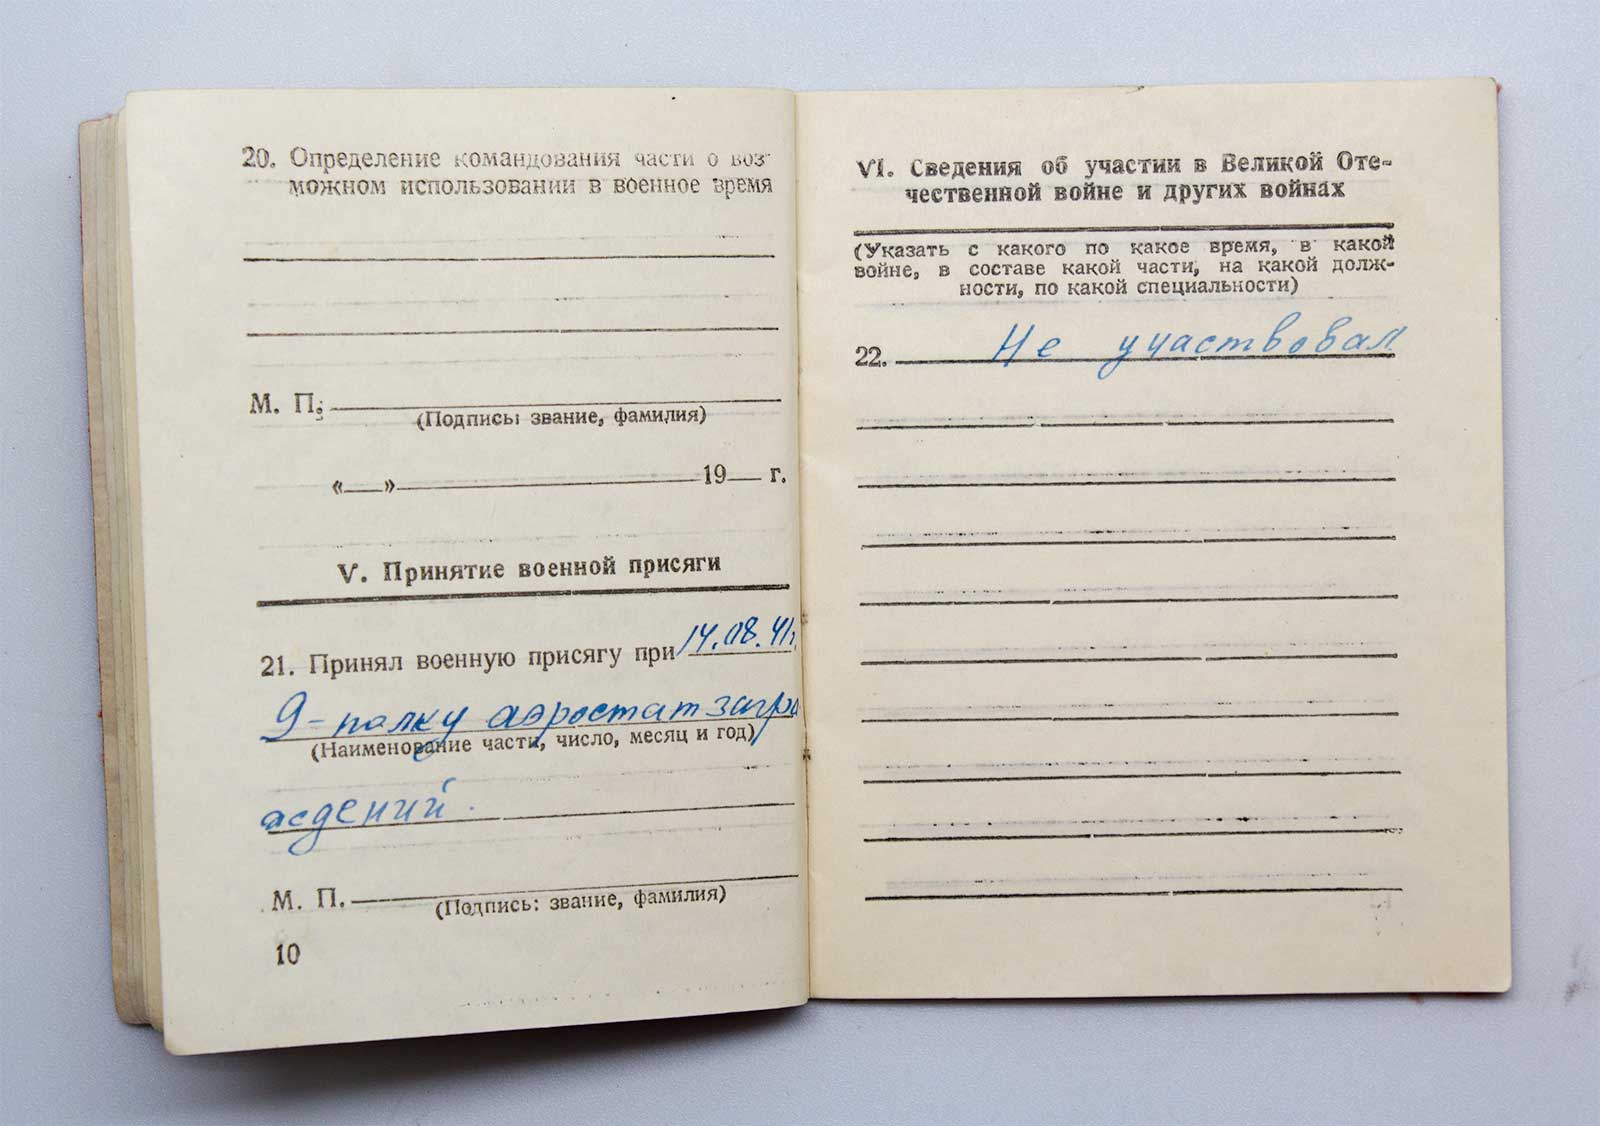 20. Определение командования части о воз-
можном использовании в военное время
М. П.
(Подпись: звание, фамилия)
«__»____ 19__ г.
V. Принятие военной присяги
21. Принял военную присягу при 14.08.41г.
9-полку аэростат загра
(Наименование части, число, месяц и год)
аждений.
М. П.
(Подпись: звание, фамилия)
10
VI. Сведения об участии в Великой Оте-
чественной войне и других войнах
(Указать с какого по какое время, в какой
войне, в составе какой части, на какой долж-
ности, по какой специальности)
22. Не участвовал